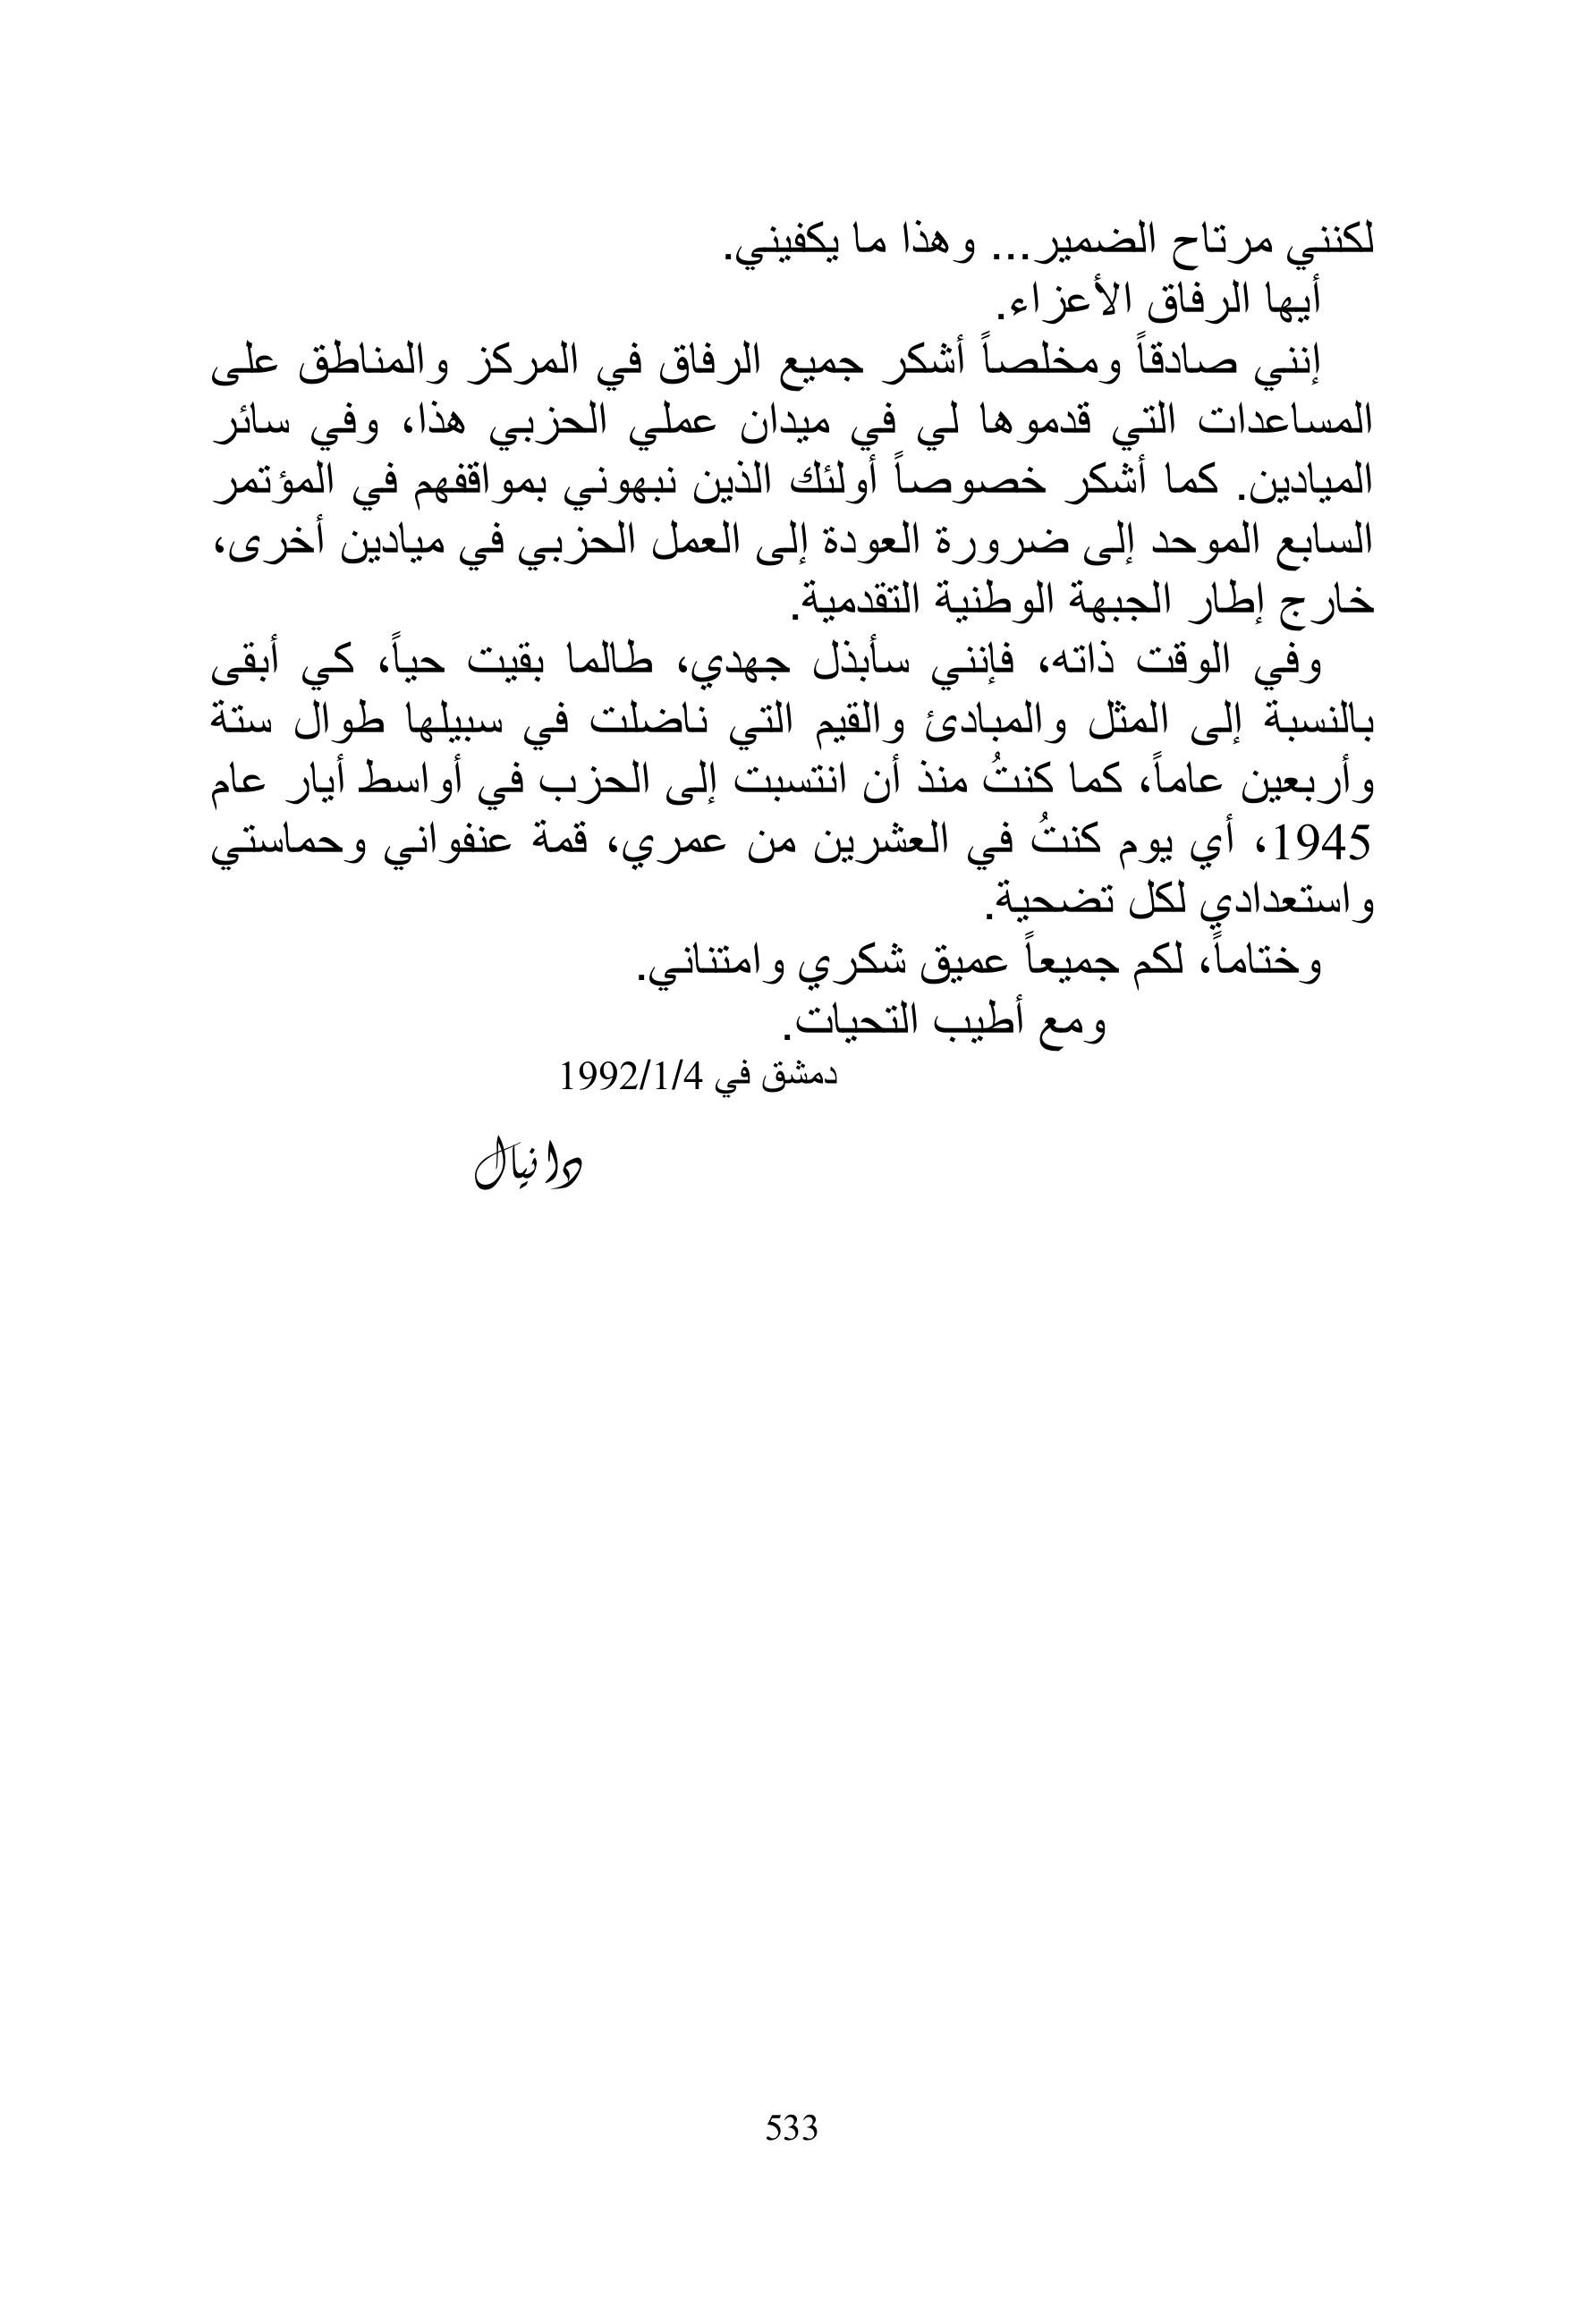 لكنني مرتاح الضمير... وهذا ما يكفيني.
أيها الرفاق الأعزاء.
إنني صادقاً ومخلصاً أشكر جميع الرفاق في المركز والمناطق على
المساعدات التي قدموها لي في ميدان عملي الحزبي هذا، وفي سائر
الميادين. كما أشكر خصوصاً أولئك الذين نبهوني بمواقفهم في المؤتمر
السابع الموحد إلى ضرورة العودة إلى العمل الحزبي في ميادين أخرى،
خارج إطار الجبهة الوطنية التقدمية.
وفي الوقت ذاته، فإنني سأبذل جهدي، طالما بقيت حياً، كي أبقى
بالنسبة إلى المثل والمبادئ والقيم التي ناضلت في سبيلها طوال ستة
وأربعين عاماً، كما كنتُ منذ أن انتسبت إلى الحزب في أواسط أيار عام
1945، أي يوم كنتُ في العشرين من عمري، قمة عنفواني وحماستي
واستعدادي لكل تضحية.
وختاماً، لكم جميعاً عميق شكري وامتناني.
ومع أطيب التحيات.
دمشق في 1992/1/4
دانيال
533